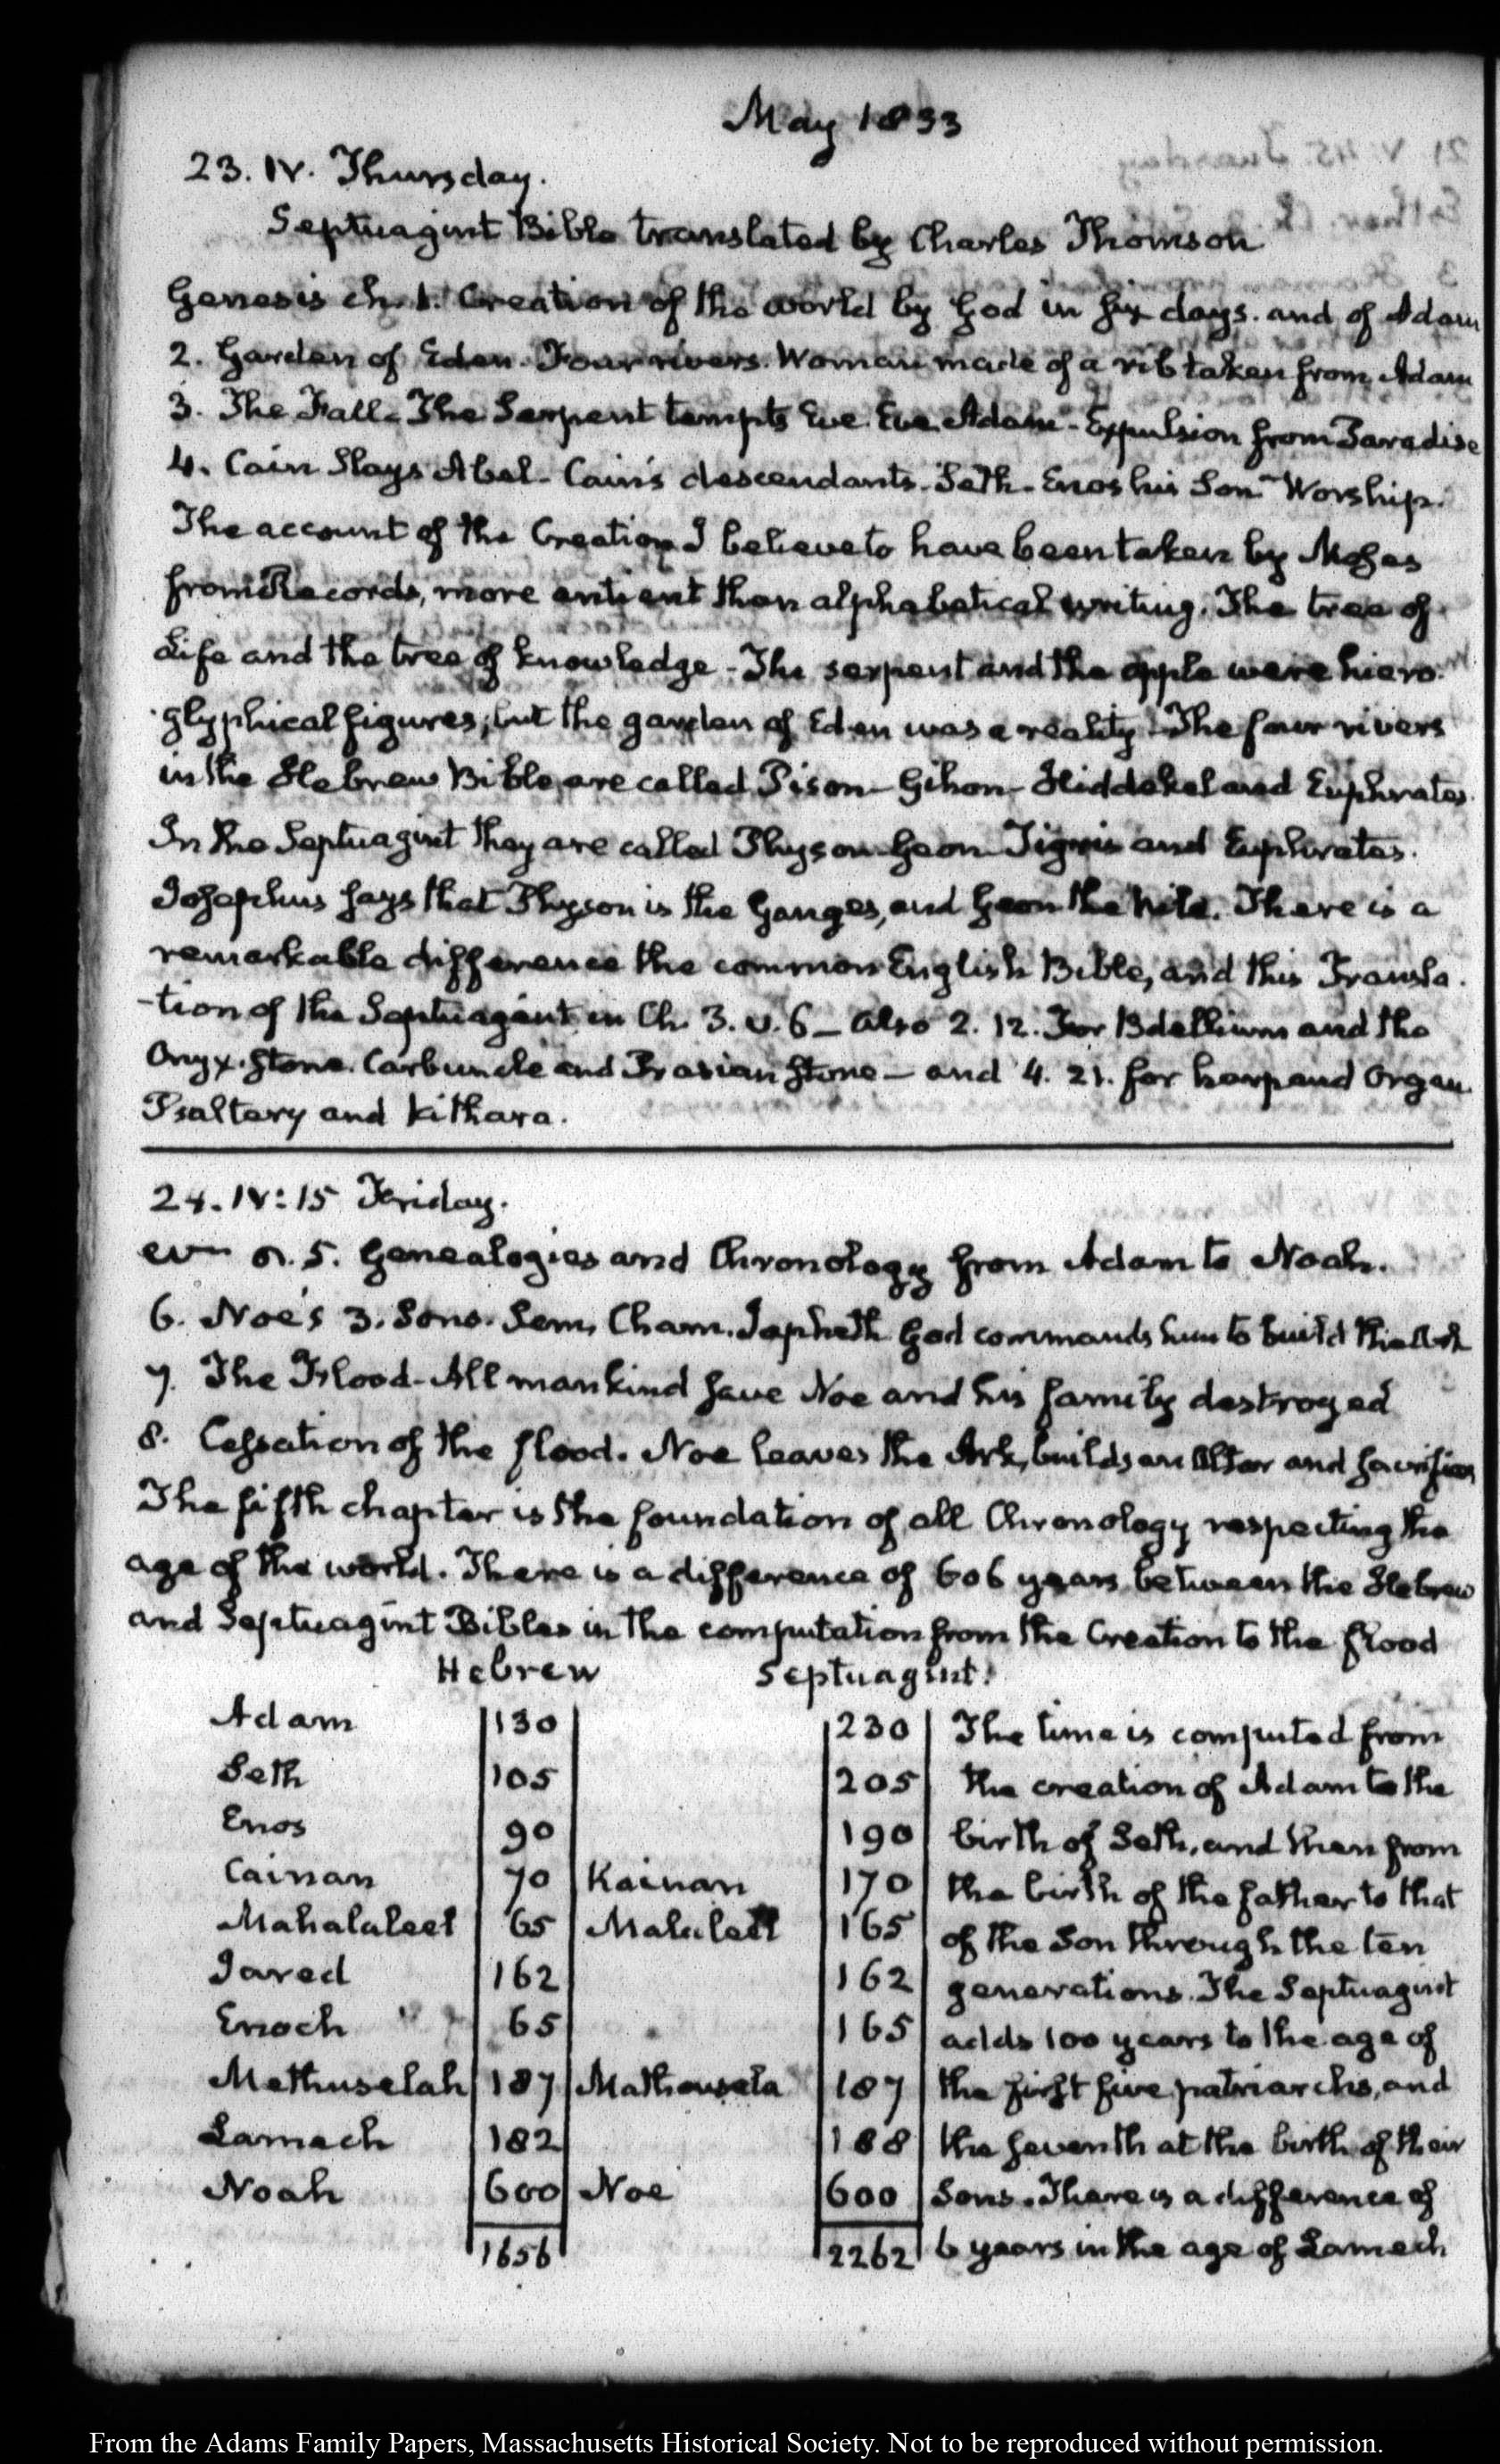 May 1833
23. IV. Thursday.
Septuagint Bible translated by Charles Thomson
Genesis ch. 1. Creation of the world by God in six days. and of Adam
2. Garden of Eden. Four rivers. Woman made of a rib taken from Adam
3. The Fall. The Serpent tempts Eve. Eve, Adam - Expulsion from Paradise
4. Cain Slays Abel - Cain's descendants - Seth - Enos his Son - Worship.
The account of the Creation I believe to have been taken by Moses
from Records, more antient than alphabetical writing. The tree of
Life and the tree of knowledge - The serpent and the apple were hiero
glyphical figures; but the garden of Eden was a reality. The four rivers
in the Hebrew Bible are called Pison - Gihon - Hiddekel and Euphrates.
In the Septuagint they are called Physon Geon Tigris and Euphrates.
Josephus says that Physon is the Ganges, and Geon the Nile. There is a
remarkable difference the common English Bible, and this Transla
-tion of the Septuagint in Ch. 3. v. 6 - also 2. 12. For Bdellium and the
Onyx-stone. Carbuncle and Prasian stone - and 4. 21. for harp and Organ
Psaltery and Kithara.
24. IV: 15 Friday.
5. Genealogies and Chronology from Adam to Noah.
6. Noe's 3. Sons. Sem, Cham. Japheth God commands him to build the Ark
7. The Flood - All mankind save Noe and his family destroyed
8. Cessation of the flood. Noe leaves the Ark, builds an Altar and sacrifices
The fifth chapter is the foundation of all Chronology respecting the
age of the world. There is a difference of 606 years between the Hebrew
and Septuagint Bibles in the computation from the Creation to the flood
Hebrew Septuagint.
Adam 130 230 The time is computed from
Seth 105 205 the creation of Adam to the
Enos 90 190 birth of Seth, and then from
Cainan 70 Kainan 170 the birth of the father to that
Mahalaleel 65 Malaleel 165 of the Son through the ten
Jared 162 162 generations. The Septuagint
Enoch 65 165 adds 100 years to the age of
Methuselah 187 Mathousela 187 the first five patriarchs, and
Lamech 182 188 the seventh at the birth of their
Noah 600 Noe 600 Sons. There is a difference of
1656 2262 6 years in the age of Lamech
From the Adams Family Papers, Massachusetts Historical Society. Not to be reproduced without permission.